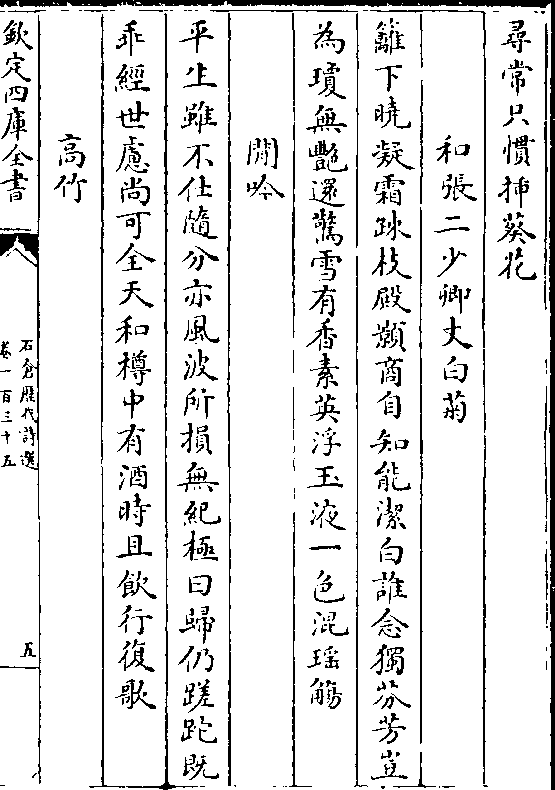 尋常只慣揷葵花
和張二少卿丈白菊
籬下曉凝霜踈枝殿顥商自知能潔白誰念獨芬芳豈
為瓊無艷還驚雪有香素英浮玉液一色混瑶觴
閒吟
平生雖不仕隨分亦風波所損無紀極曰歸仍蹉跎既
乖經世慮尚可全天和樽中有酒時且飲行復歌
高竹
欽定四庫全書
石倉歴代詩選
卷一百三十五
五